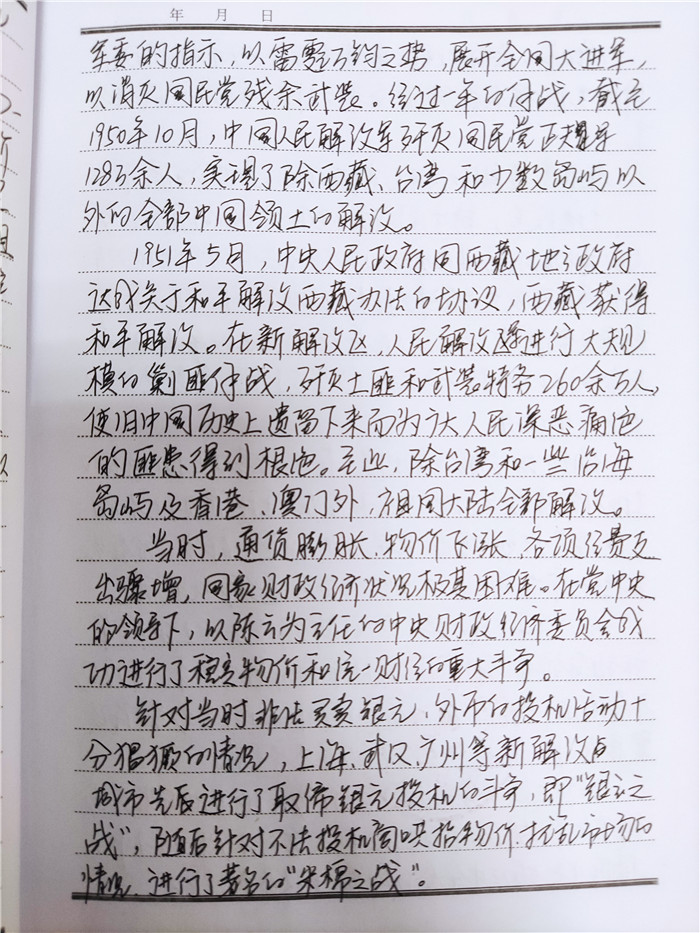 年 月 日
军委的指示，以雷霆万钧之势，展开全国大进军，
以消灭国民党残余武装。经过一年的作战，截至
1950年10月，中国人民解放军歼灭国民党正规军
128万余人，实现了除西藏、台湾和少数岛屿以
外的全部中国领土的解放。
1951年5月，中央人民政府同西藏地方政府
达成关于和平解放西藏办法的协议，西藏获得
和平解放。在新解放区，人民解放军进行大规
模的剿匪作战，歼灭土匪和武装特务260余万人，
使旧中国历史上遗留下来而为广大人民深恶痛绝
的匪患得到根绝。至此，除台湾和一些沿海
岛屿及香港、澳门外，祖国大陆全部解放。
当时，通货膨胀、物价飞涨，各项经费支
出骤增，国家财政经济状况极其困难。在党中央
的领导下，以陈云为主任的中央财政经济委员会成
功进行了稳定物价和统一财经的重大斗争。
针对当时非法买卖银元、外币的投机活动十
分猖獗的情况，上海、武汉、广州等新解放的
城市先后进行了取缔银元投机的斗争，即“银元之
战”，随后针对不法投机商哄抬物价、扰乱市场的
情况，进行了著名的“米棉之战”。